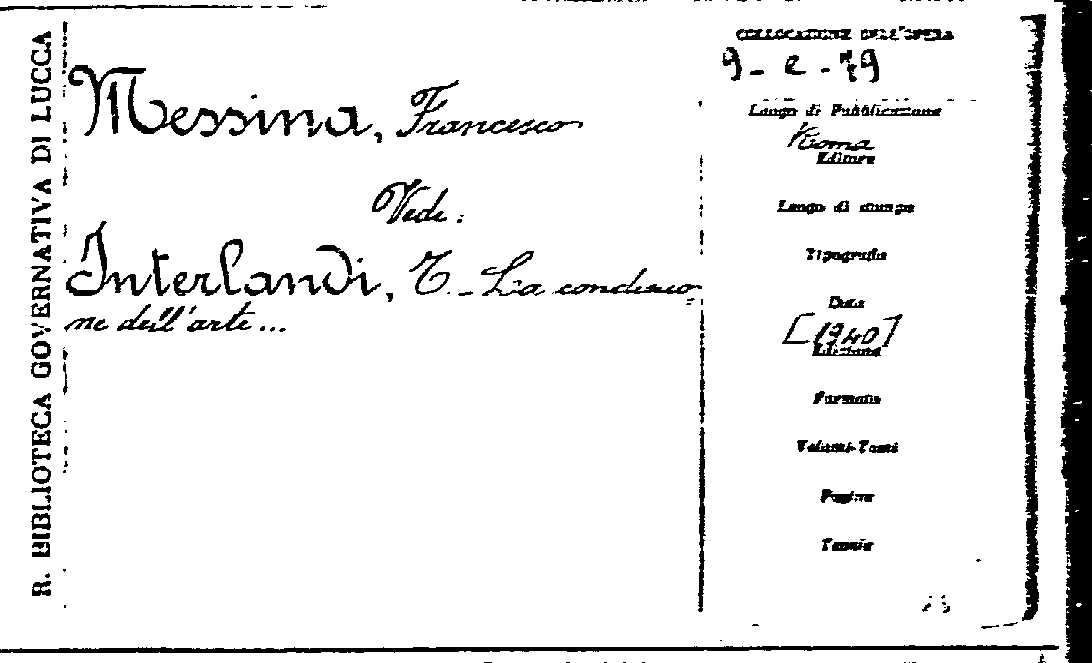 R. BIBLIOTECA GOVERNATIVA DI LUCCA
Messina, Francesco
Vede:
Interlandi, T. - La condizio
ne dell'arte...
COLLOCAZIONE DELL'OPERA
9 - e - 79
Luogo di Pubblicazione
Roma
Editore
Luogo di stampa
Tipografia
Data
[1940]
Edizione
Formato
Volumi-Tomi
Pagine
Tavole